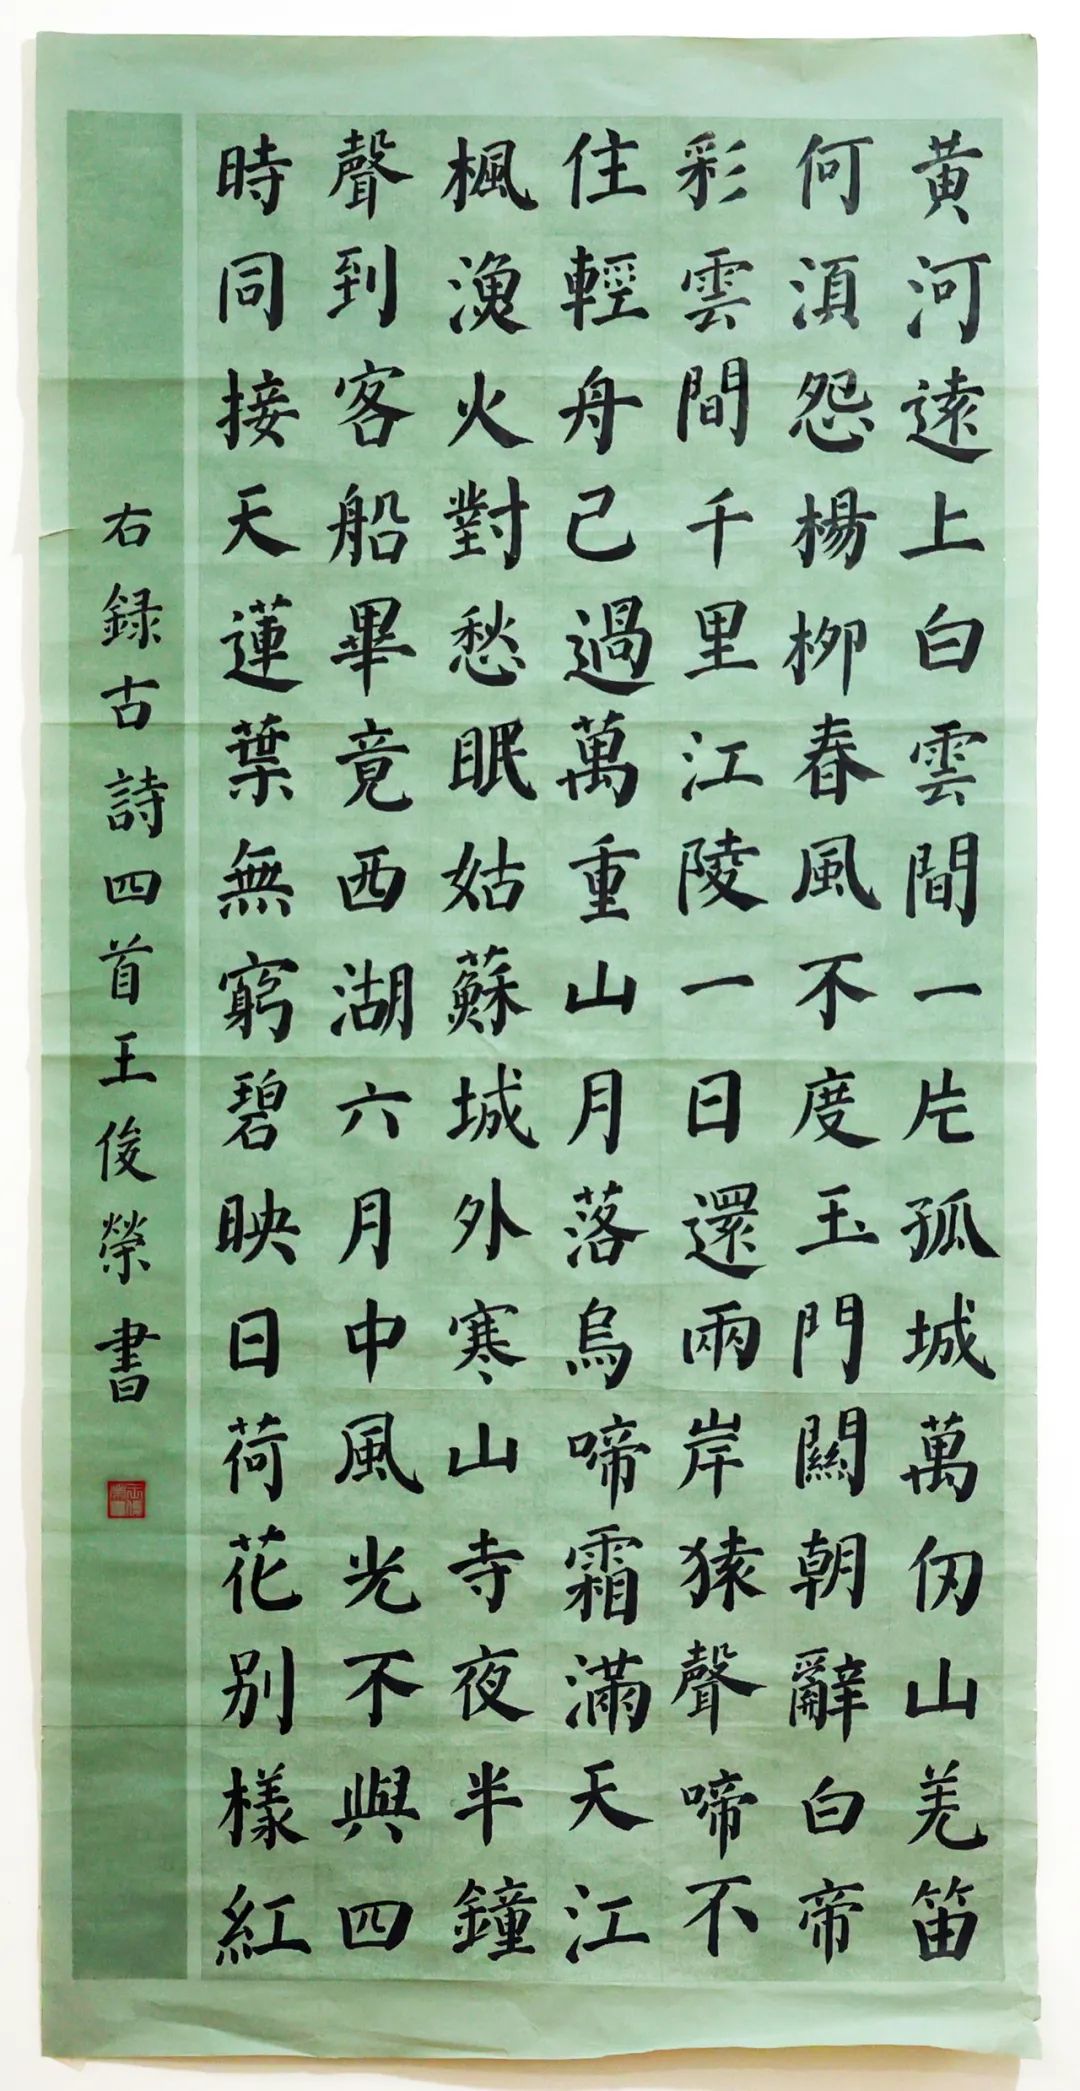 黄河遠上白雲間一片孤城萬仞山羌笛
何湏怨楊柳春風不度玉門關朝辭白帝
彩雲間千里江陵一日還兩岸猿聲啼不
住輕舟已過萬重山月落烏啼霜滿天江
楓漁火對愁眠姑蘇城外寒山寺夜半鐘
聲到客船畢竟西湖六月中風光不與四
時同接天蓮葉無窮碧映日荷花别樣紅
右録古詩四首王俊榮書